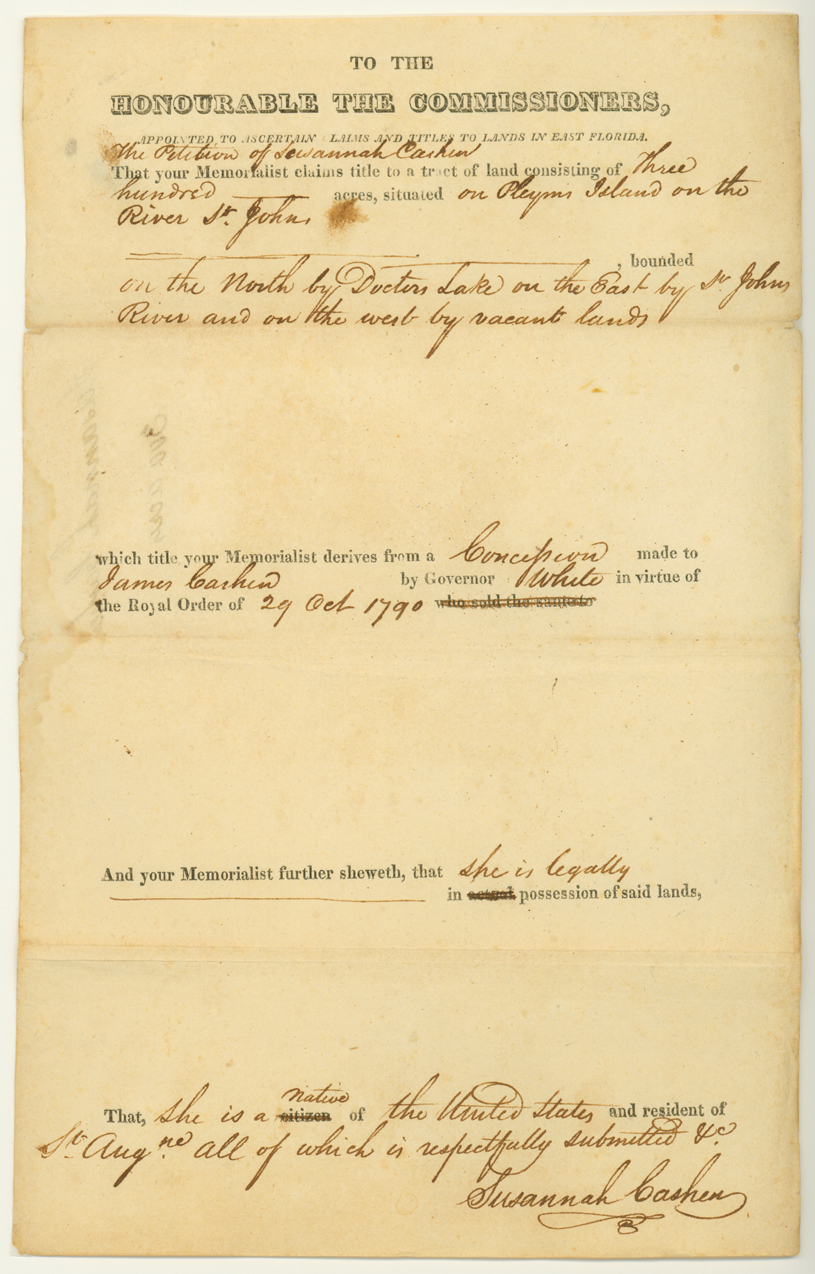 TO THE
HONOURABLE THE COMMISSIONERS,
APPOINTED TO ASCERTAIN CLAIMS AND TITLES TO LANDS IN EAST FLORIDA.
The Petition of Susannah Cashen
That your Memorialist claims title to a tract of land consisting of Three
hundred acres, situated on Pleyms Island on the
River St. Johns
, bounded
on the North by Doctors Lake on the East by St Johns
River and on the west by vacant lands
which title your Memorialist derives from a Concession made to
James Cashen by Governor White in virtue of
the Royal Order of 29 Oct 1790 who sold the same to
And your Memorialist further sheweth, that she is legally
in actual possession of said lands,
native
That, she is a citizen of the United States and resident of
St. Augne. all of which is respectfully submitted &c.
Susannah Cashen